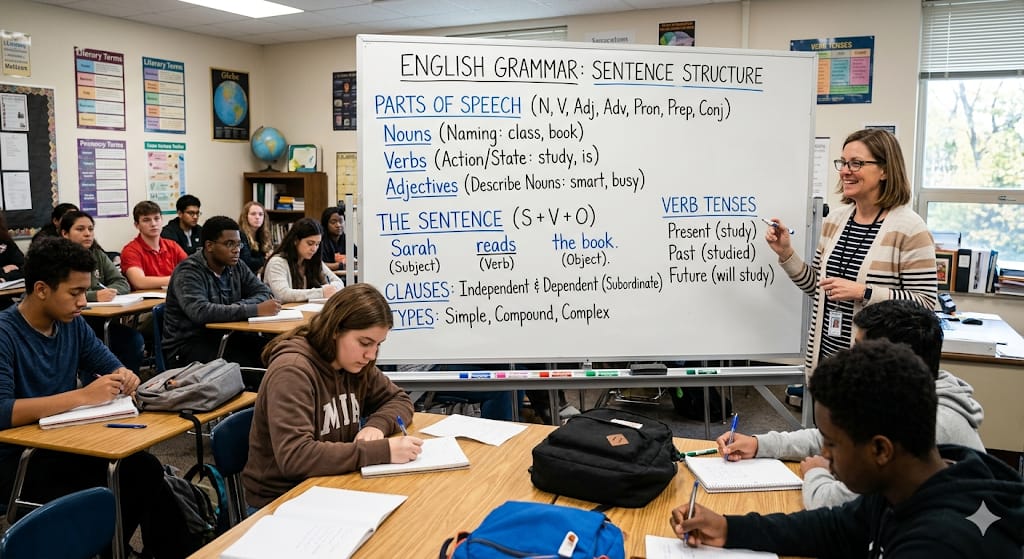 ENGLISH GRAMMAR: SENTENCE STRUCTURE
PARTS OF SPEECH (N, V, Adj, Adv, Pron, Prep, Conj)
Nouns (Naming: class, book)
Verbs (Action/State: study, is)
Adjectives (Describe Nouns: smart, busy)
THE SENTENCE (S + V + O)
Sarah reads the book.
(Subject) (Verb) (Object).
CLAUSES: Independent & Dependent (Subordinate)
TYPES: Simple, Compound, Complex
VERB TENSES
Present (study)
Past (studied)
Future (will study)
VERB TENSES
Literary Terms
Literary Terms
Globe
MIA